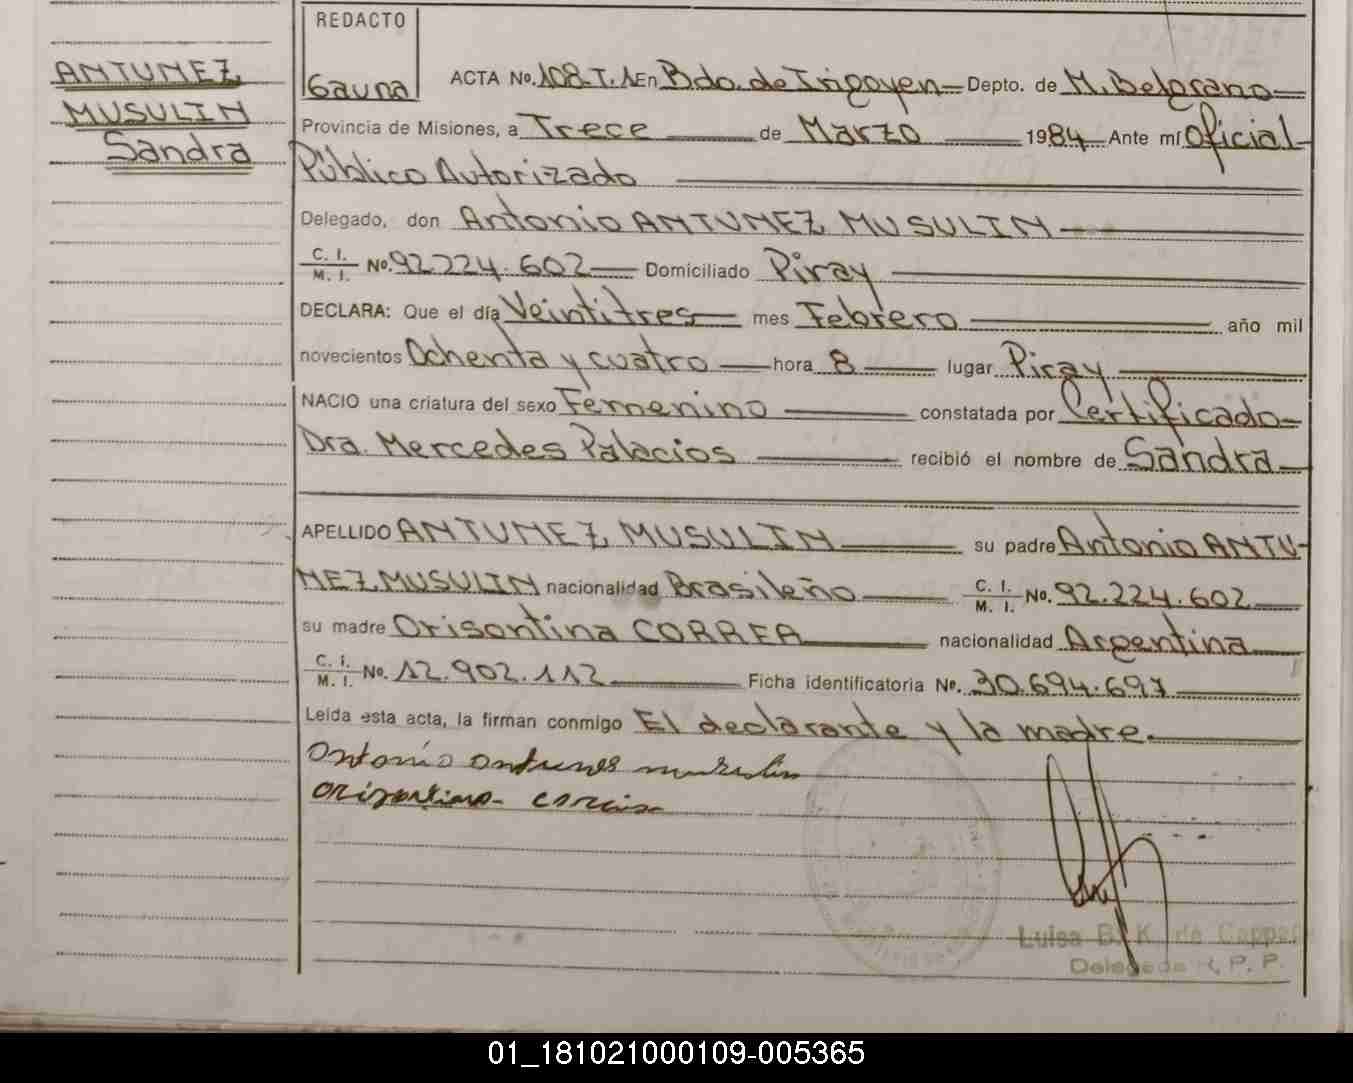 REDACTO
Gauna
ANTUNEZ
MUSULIN
Sandra
ACTA No. 108-T.1 En Bdo. de Irigoyen Depto. de M. Belgrano
Provincia de Misiones, a Trece de Marzo 1984 Ante mí Oficial
Público Autorizado
Delegado, don Antonio ANTUNEZ MUSULIN
C. I. M. I. No. 92.224.602 Domiciliado Piray
DECLARA: Que el día Veintitres mes Febrero año mil
novecientos Ochenta y cuatro hora 8 lugar Piray
NACIO una criatura del sexo Femenino constatada por Certificado
Dra. Mercedes Palacios recibió el nombre de Sandra
APELLIDO ANTUNEZ MUSULIN su padre Antonio ANTU-
NEZ MUSULIN nacionalidad Brasileño C. I. M. I. No. 92.224.602
su madre Orisontina CORREA nacionalidad Argentina
C. I. M. I. No. 12.902.112 Ficha identificatoria No. 30.694.697
Leída esta acta, la firman conmigo El declarante y la madre.
Antonio antunes musulin
orisontina
Luisa B. K. de
Delegada R. P. P.
01_181021000109-005365